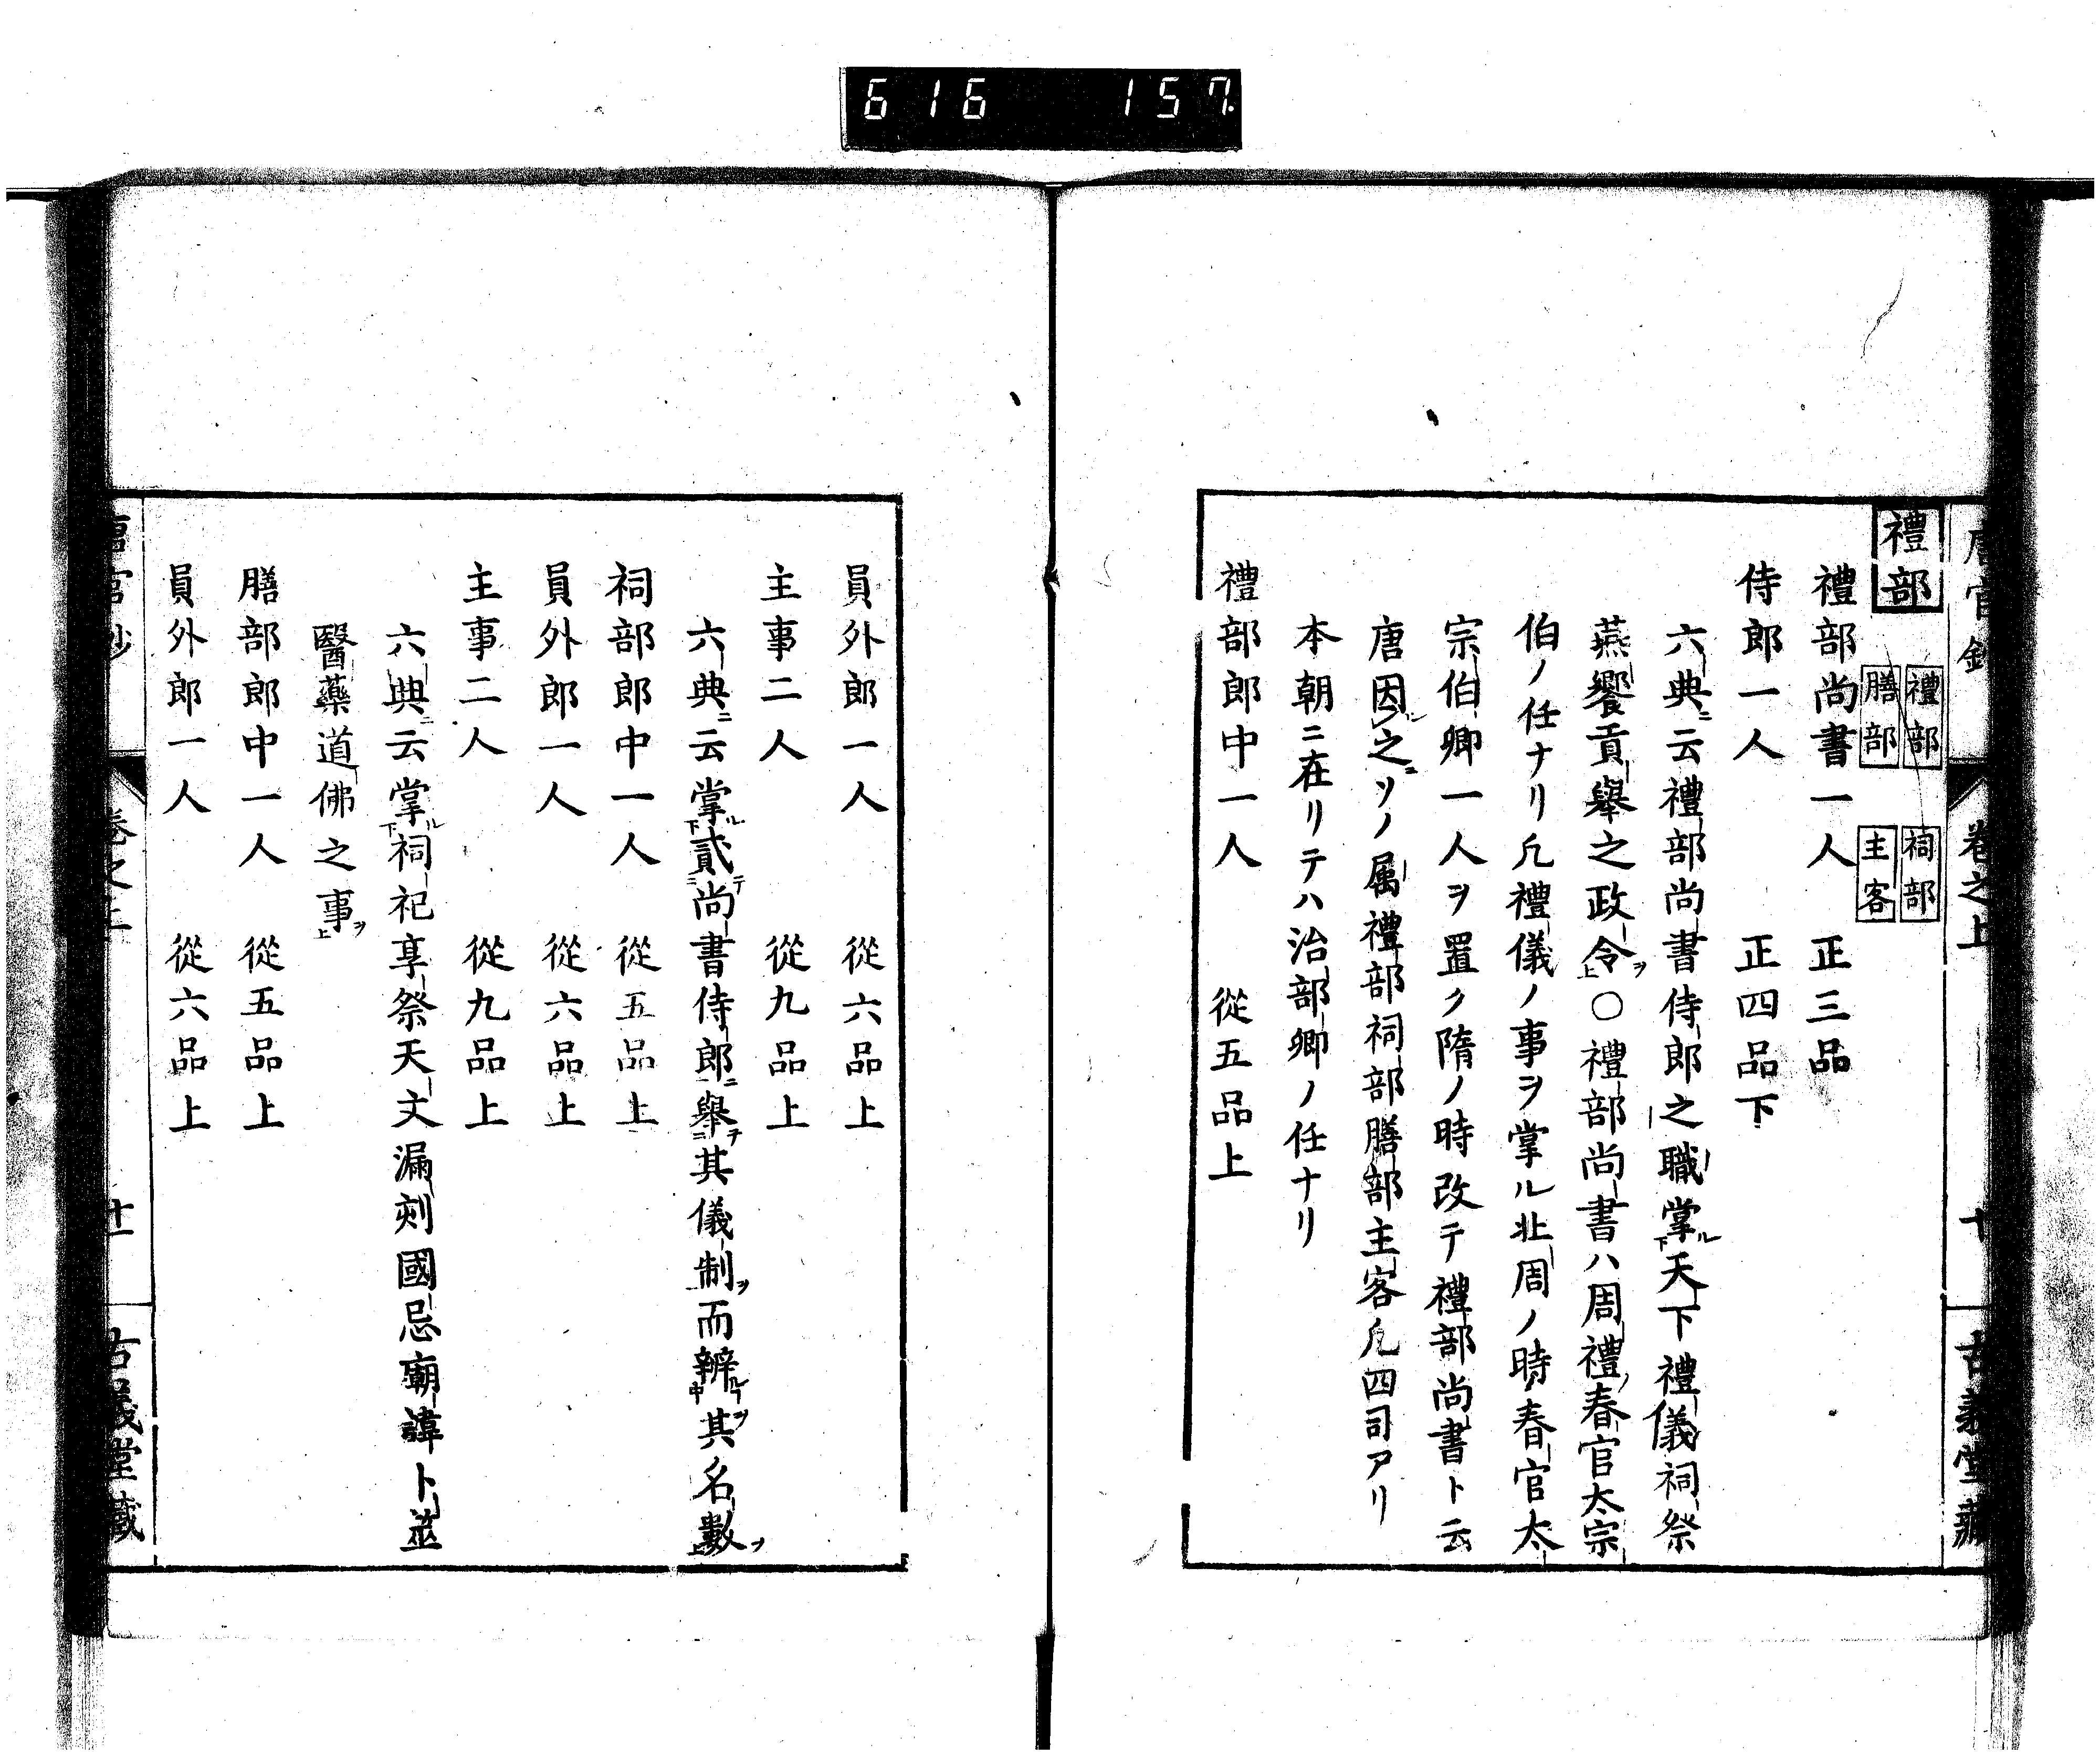 616 157.
唐官鈔 卷之上 十 古義堂藏
禮部 禮部 膳部 祠部 主客
禮部尚書一人 正三品
侍郎一人 正四品下
六典ニ云禮部尚書侍郎之職掌ル下天下禮儀祠祭
燕饗貢舉之政令ヲ上○禮部尚書ハ周禮ノ春官太宗
伯ノ任ナリ凢禮儀ノ事ヲ掌ル北周ノ時春官太
宗伯卿一人ヲ置ク隋ノ時改テ禮部尚書ト云
唐因ル之ニソノ属禮部祠部膳部主客凢四司アリ
本朝ニ在リテハ治部卿ノ任ナリ
禮部郎中一人 從五品上
員外郎一人 從六品上
主事二人 從九品上
六典ニ云掌ル下貳テ二尚書侍郎ニ一舉テ二其儀制ヲ一而辨ルヿヲ中其名數ヲ上
祠部郎中一人 從五品上
員外郎一人 從六品上
主事二人 從九品上
六典ニ云掌ル下祠祀享祭天文漏刻國忌廟諱卜筮
醫藥道佛之事ヲ上
膳部郎中一人 從五品上
員外郎一人 從六品上
唐官鈔 卷之上 十一 古義堂藏